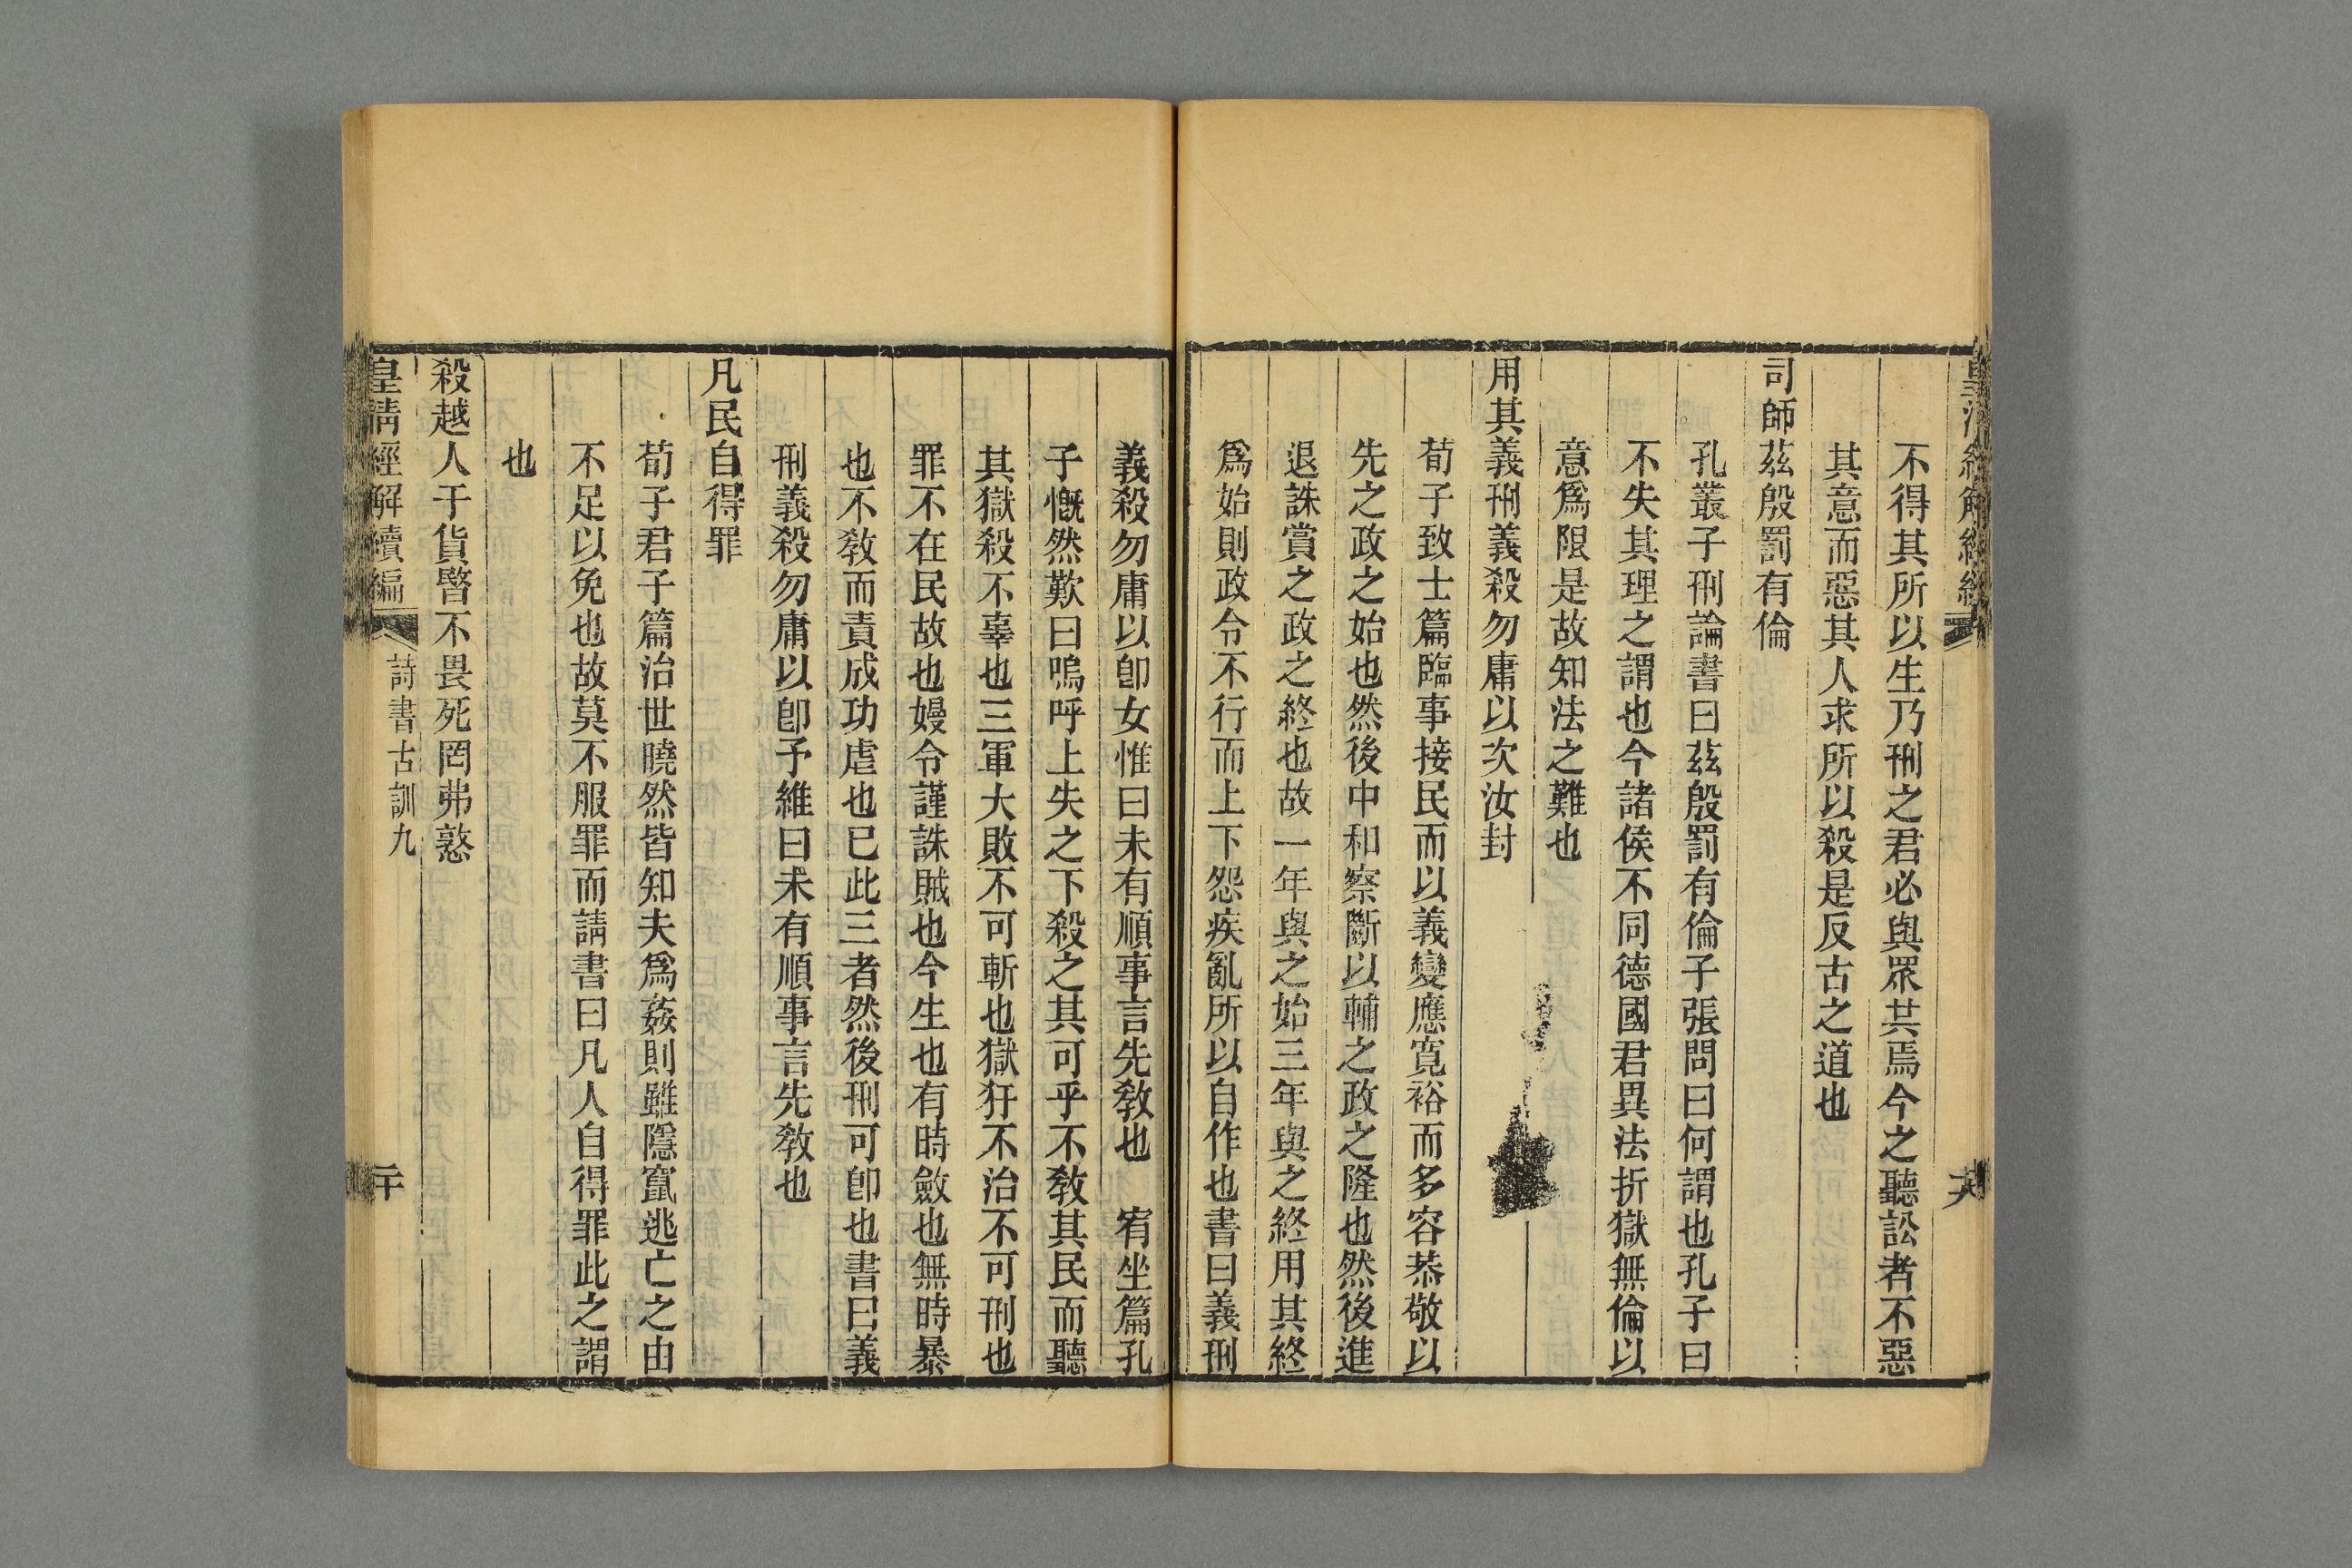 不得其所以生乃刑之君必與眾共焉今之聽訟者不惡
其意而惡其人求所以殺是反古之道也
司師茲殷罰有倫
孔叢子刑論書曰茲殷罰有倫子張問曰何謂也孔子曰
不失其理之謂也今諸侯不同德國君異法折獄無倫以
意爲限是故知法之難也
用其義刑義殺勿庸以次汝封
荀子致士篇臨事接民而以義變應寬裕而多容恭敬以
先之政之始也然後中和察斷以輔之政之隆也然後進
退誅賞之政之終也故一年與之始三年與之終用其終
爲始則政令不行而上下怨疾亂所以自作也書曰義刑
義殺勿庸以卽女惟曰未有順事言先敎也　宥坐篇孔
子慨然歎曰嗚呼上失之下殺之其可乎不敎其民而聽
其獄殺不辜也三軍大敗不可斬也獄犴不治不可刑也
罪不在民故也嫚令謹誅賊也今生也有時斂也無時暴
也不敎而責成功虐也已此三者然後刑可卽也書曰義
刑義殺勿庸以卽予維曰未有順事言先敎也
凡民自得罪
荀子君子篇治世曉然皆知夫爲姦則雖隱竄逃亡之由
不足以免也故莫不服罪而請書曰凡人自得罪此之謂
也
殺越人于貨暋不畏死罔弗憝
皇清經解續編
詩書古訓九
二十